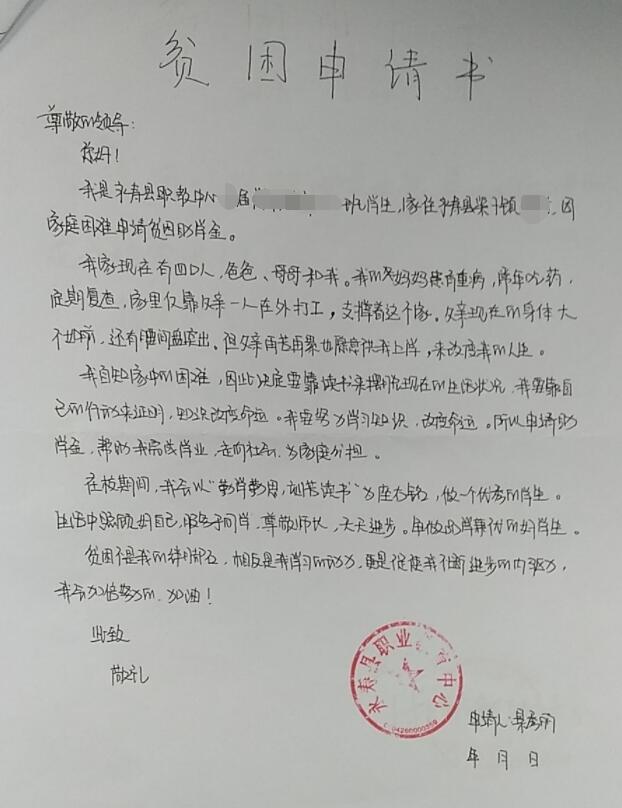 贫困申请书
尊敬的领导：
您好！
我是永寿县职教中心 届 班学生，家住永寿县 镇 ，因
家庭困难申请贫困助学金。
我家现在有四口人，爸爸、哥哥和我。我的妈妈患有重病，常年吃药，
定期复查，家里仅靠父亲一人在外打工，支撑着这个家。父亲现在的身体大
不如前，还有腰间盘突出。但父亲再苦再累也愿意供我上学，来改变我的人生。
我自知家中的困难，因此决定要靠读书来摆脱现在的生活状况，我要靠自
己的行动来证明，知识改变命运。我要努力学习知识，改变命运。所以申请助
学金，帮助我完成学业，走向社会，为家庭分担。
在校期间，我会以“勤学勤思，刻苦读书”为座右铭，做一个优秀的学生。
生活中照顾好自己，服务于同学，尊敬师长，天天进步。争做品学兼优的好学生。
贫困不是我的绊脚石，相反是我学习的动力，更是促使我不断进步的内驱力，
我会加倍努力的，加油！
此致
敬礼
永寿县职业 育中心
申请人：
年 月 日